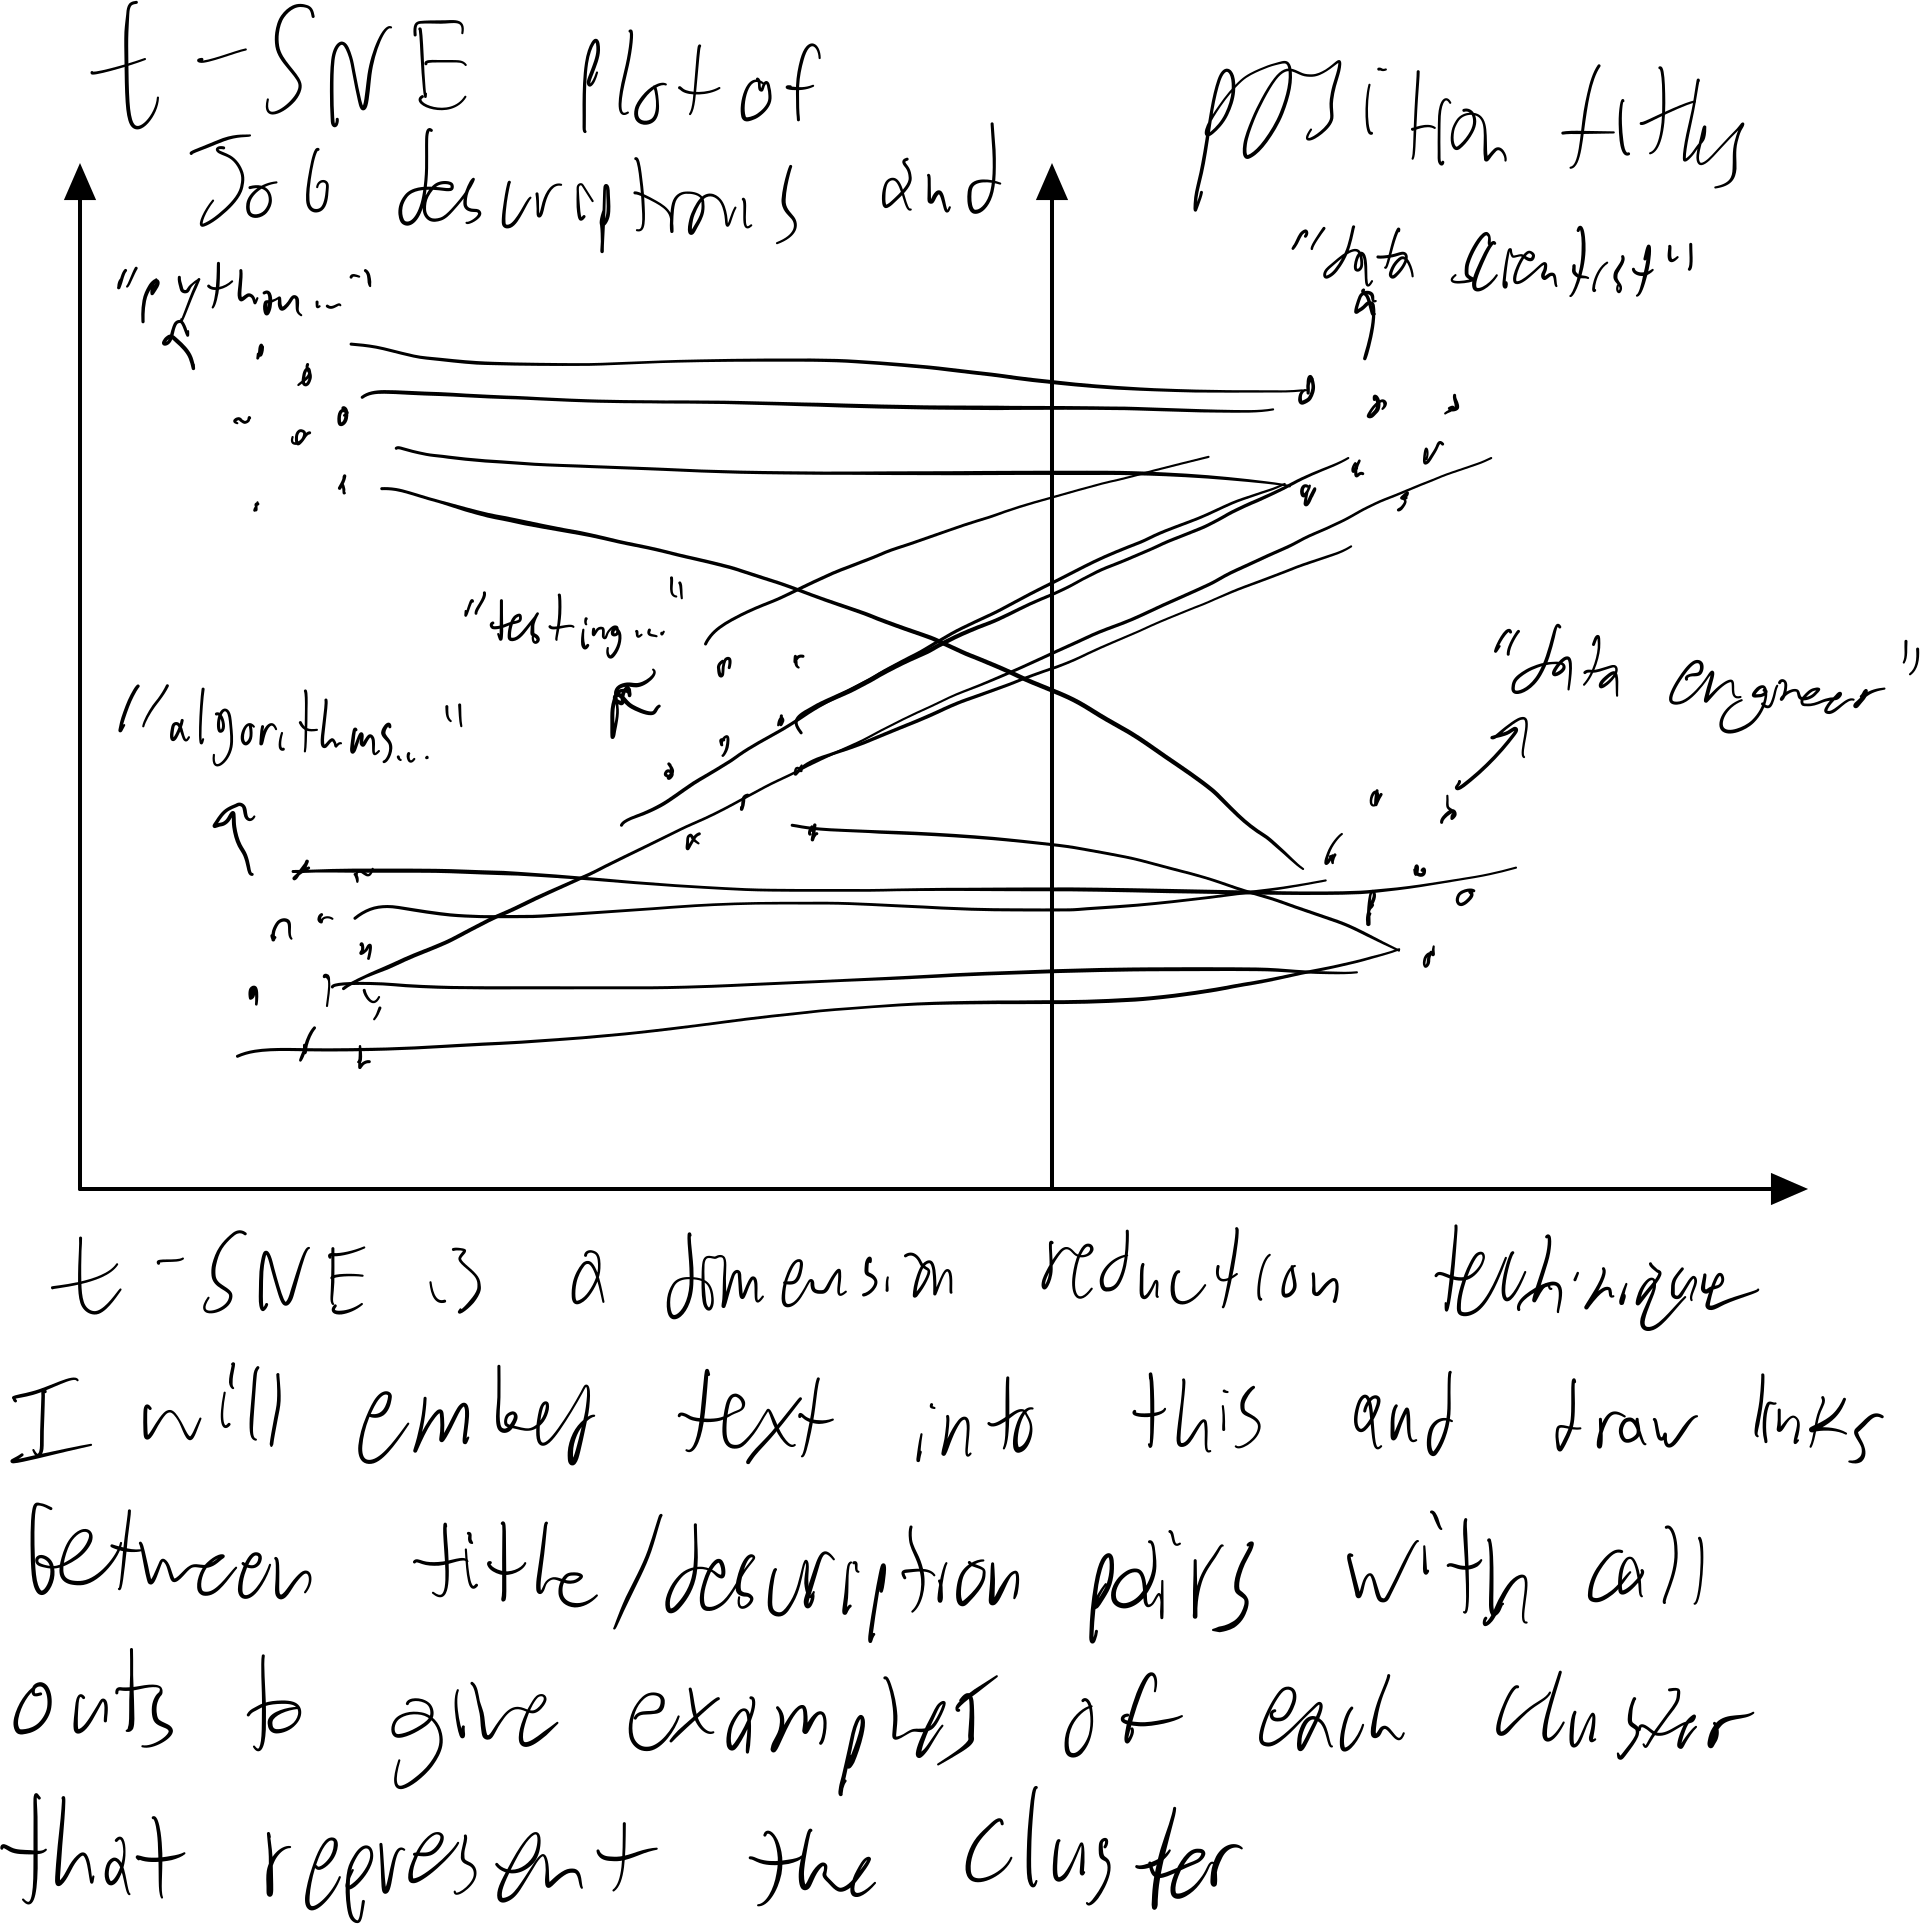 t-SNE plot of position titles
Job descriptions and
"python..."
"data scientist"
"testing..."
"algorithms..."
"data engineer"
t-SNE is a dimension reduction technique
I will embed text into this and draw links
between title/description pairs with call
outs to give examples of each cluster
that represent the cluster